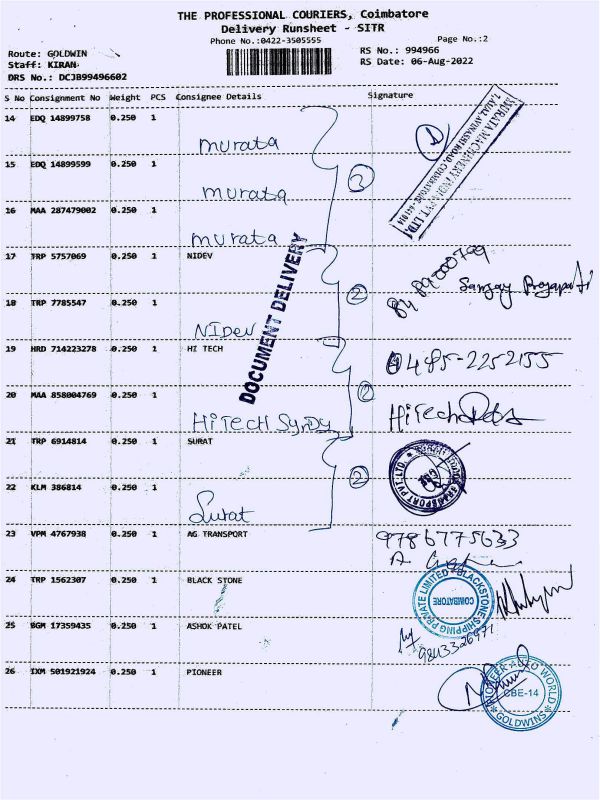 THE PROFESSIONAL COURIERS, Coimbatore
Delivery Runsheet - SITR
Phone No.:0422-3505555
Page No.:2
Route: GOLDWIN
RS No.: 994966
Staff: KIRAN
RS Date: 06-Aug-2022
DRS No.: DCJB99496602
S No Consignment No Weight PCS Consignee Details Signature
14 EDQ 14899758 0.250 1
murata
15 EDQ 14899599 0.250 1
3
murata
16 MAA 287479002 0.250 1
murata
MURATA MACHINERY INDIA PVT. LTD.
17 TRP 5757069 0.250 1 NIDEV
Sanjay Prajapati
18 TRP 7785547 0.250 1
2
NIDEV
DOCUMENT DELIVERY
19 HRD 714223278 0.250 1 HI TECH
0485-2252155
20 MAA 858004769 0.250 1
2
HiTECH
HiTech
21 TRP 6914814 0.250 1 SURAT
22 KLM 386814 0.250 1
2
Surat
TRANSPORT PVT. LTD.
23 VPM 4767938 0.250 1 AG TRANSPORT
9786775633
24 TRP 1562307 0.250 1 BLACK STONE
BLACKSTONE SHIPPING PRIVATE LIMITED
COIMBATORE
25 BGM 17359435 0.250 1 ASHOK PATEL
26 IXM 501921924 0.250 1 PIONEER
PIONEER WORLD
CBE-14
GOLDWINS